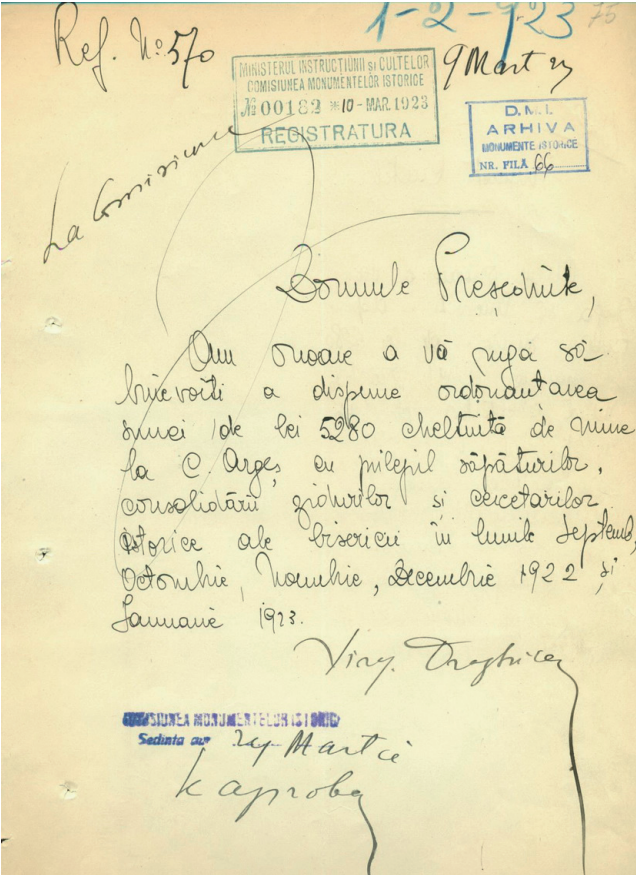 1-2-923 75
Ref. No. 570
9 Mart 23
MINISTERUL INSTRUCȚIUNII și CULTELOR
COMISIUNEA MONUMENTELOR ISTORICE
No 00182 * 10-MAR.1923
REGISTRATURA
D.M.I.
ARHIVA
MONUMENTE ISTORICE
NR. FILĂ 66
La Comisiune
Domnule Președinte,
Am onoare a vă ruga să
binevoiți a dispune ordonanțarea
sumei de lei 5280 cheltuită de mine
la C. Argeș, cu prilejul săpăturilor,
consolidării zidurilor și cercetarilor
istorice ale bisericii în lunile Septemb,
Octombrie, Noembrie, Decembrie 1922 și
Ianuarie 1923.
Virg. Draghicea
COMISIUNEA MONUMENTELOR ISTORICE
Sedinta din Martie
aproba